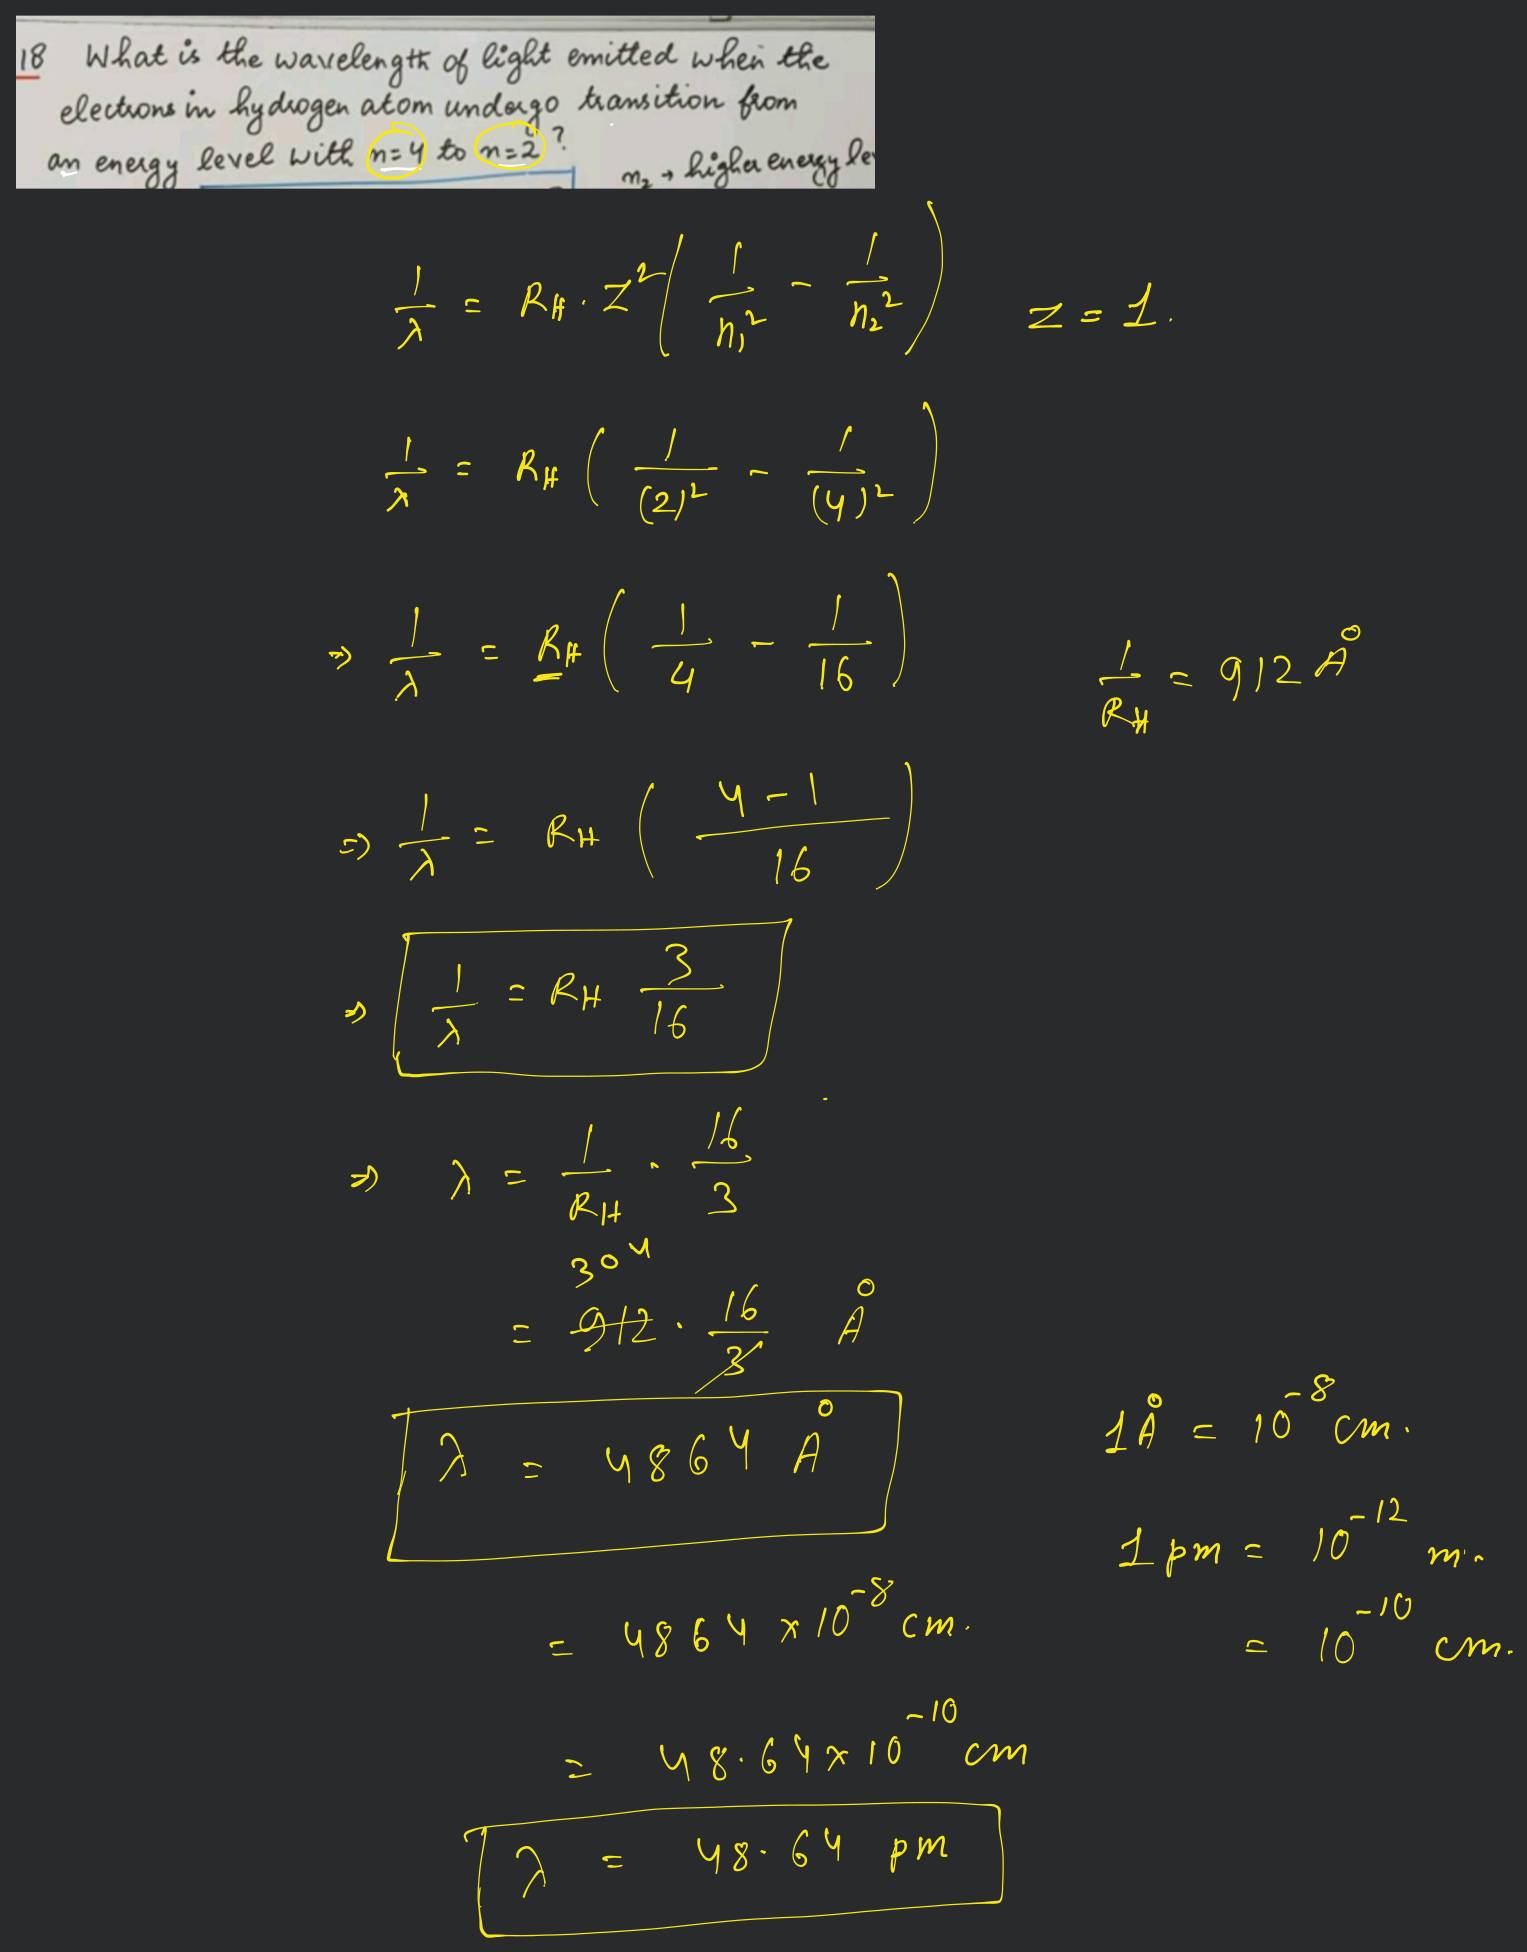 18 What is the wavelength of light emitted when the
electrons in hydrogen atom undergo transition from
an energy level with n=4 to n=2 ?
n₂ → higher energy le
1/λ = RH · Z² ( 1/n₁² - 1/n₂² ) Z = 1.
1/λ = RH ( 1/(2)² - 1/(4)² )
⇒ 1/λ = RH ( 1/4 - 1/16 ) 1/RH = 912 Å
⇒ 1/λ = RH ( 4-1/16 )
⇒ 1/λ = RH 3/16
⇒ λ = 1/RH · 16/3
304
= 912 · 16/3 Å
λ = 4864 Å 1Å = 10⁻⁸ cm.
1 pm = 10⁻¹² m.
= 4864 × 10⁻⁸ cm. = 10⁻¹⁰ cm.
= 48.64 × 10⁻¹⁰ cm
λ = 48.64 pm